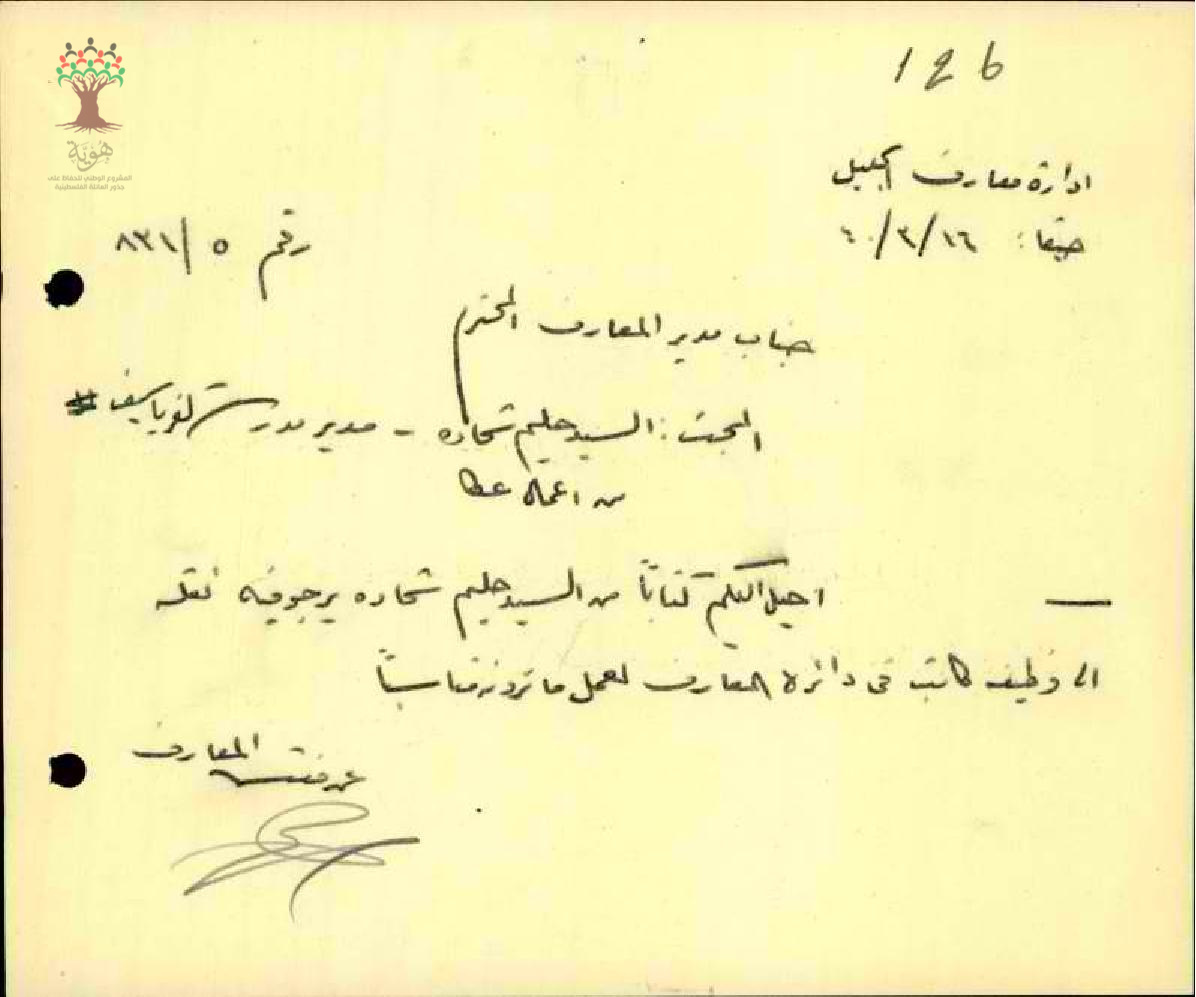 126
هوية
المشروع الوطني للحفاظ على
جذور العائلة الفلسطينية
ادارة معارف الجليل
حيفا: ١٦/٣/٤٠
رقم ٥/٨٣١
جناب مدير المعارف المحترم
البحث: السيد حليم شحاده - مدير مدرسة
من اعمال عكا
احيل اليكم كتاباً من السيد حليم شحاده يرجو فيه نقله
الى وظيفة كاتب في دائرة المعارف لعمل ما ترونه مناسباً
عن مفتش المعارف